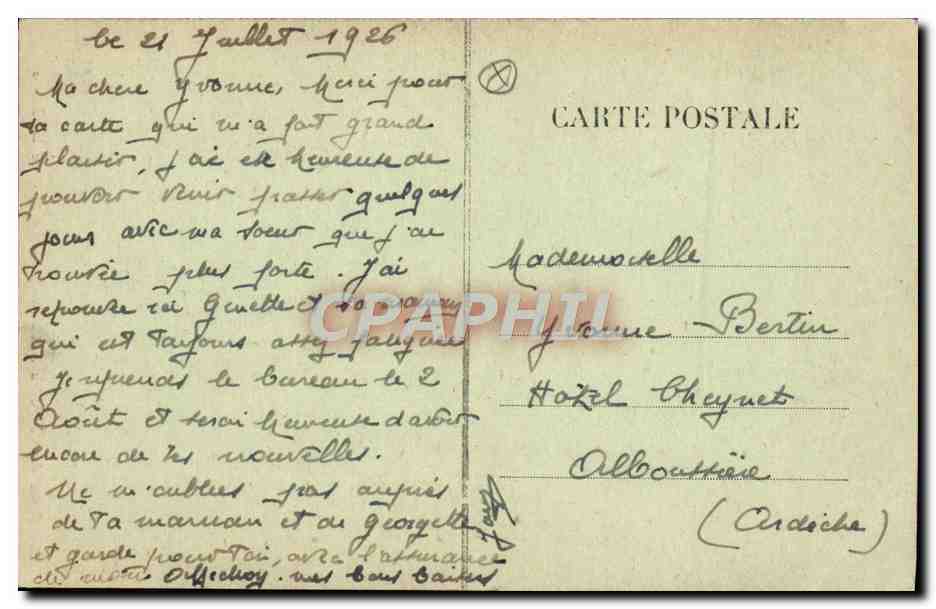 le 21 Juillet 1926
Ma chere Yvonne, Merci pour
ta carte qui m'a fait grand
plaisir, j'ai été heureuse de
pouvoir venir passer quelques
jours avec ma soeur que j'ai
trouvée plus forte. J'ai
retrouvée ici Ginette et sa maman
qui est toujours assez fatiguée
Je reprends le bureau le 2
Août et serai heureuse d'avoir
encore de tes nouvelles.
Ne m'oublies pas auprès
de ta maman et de Georgette
et garde pour toi, avec l'assurance
de mon affection mes bons baisers
CARTE POSTALE
Mademoiselle
Yvonne Bertin
Hôtel Cheynet
Alboussière
(Ardèche)
CPAPHIL